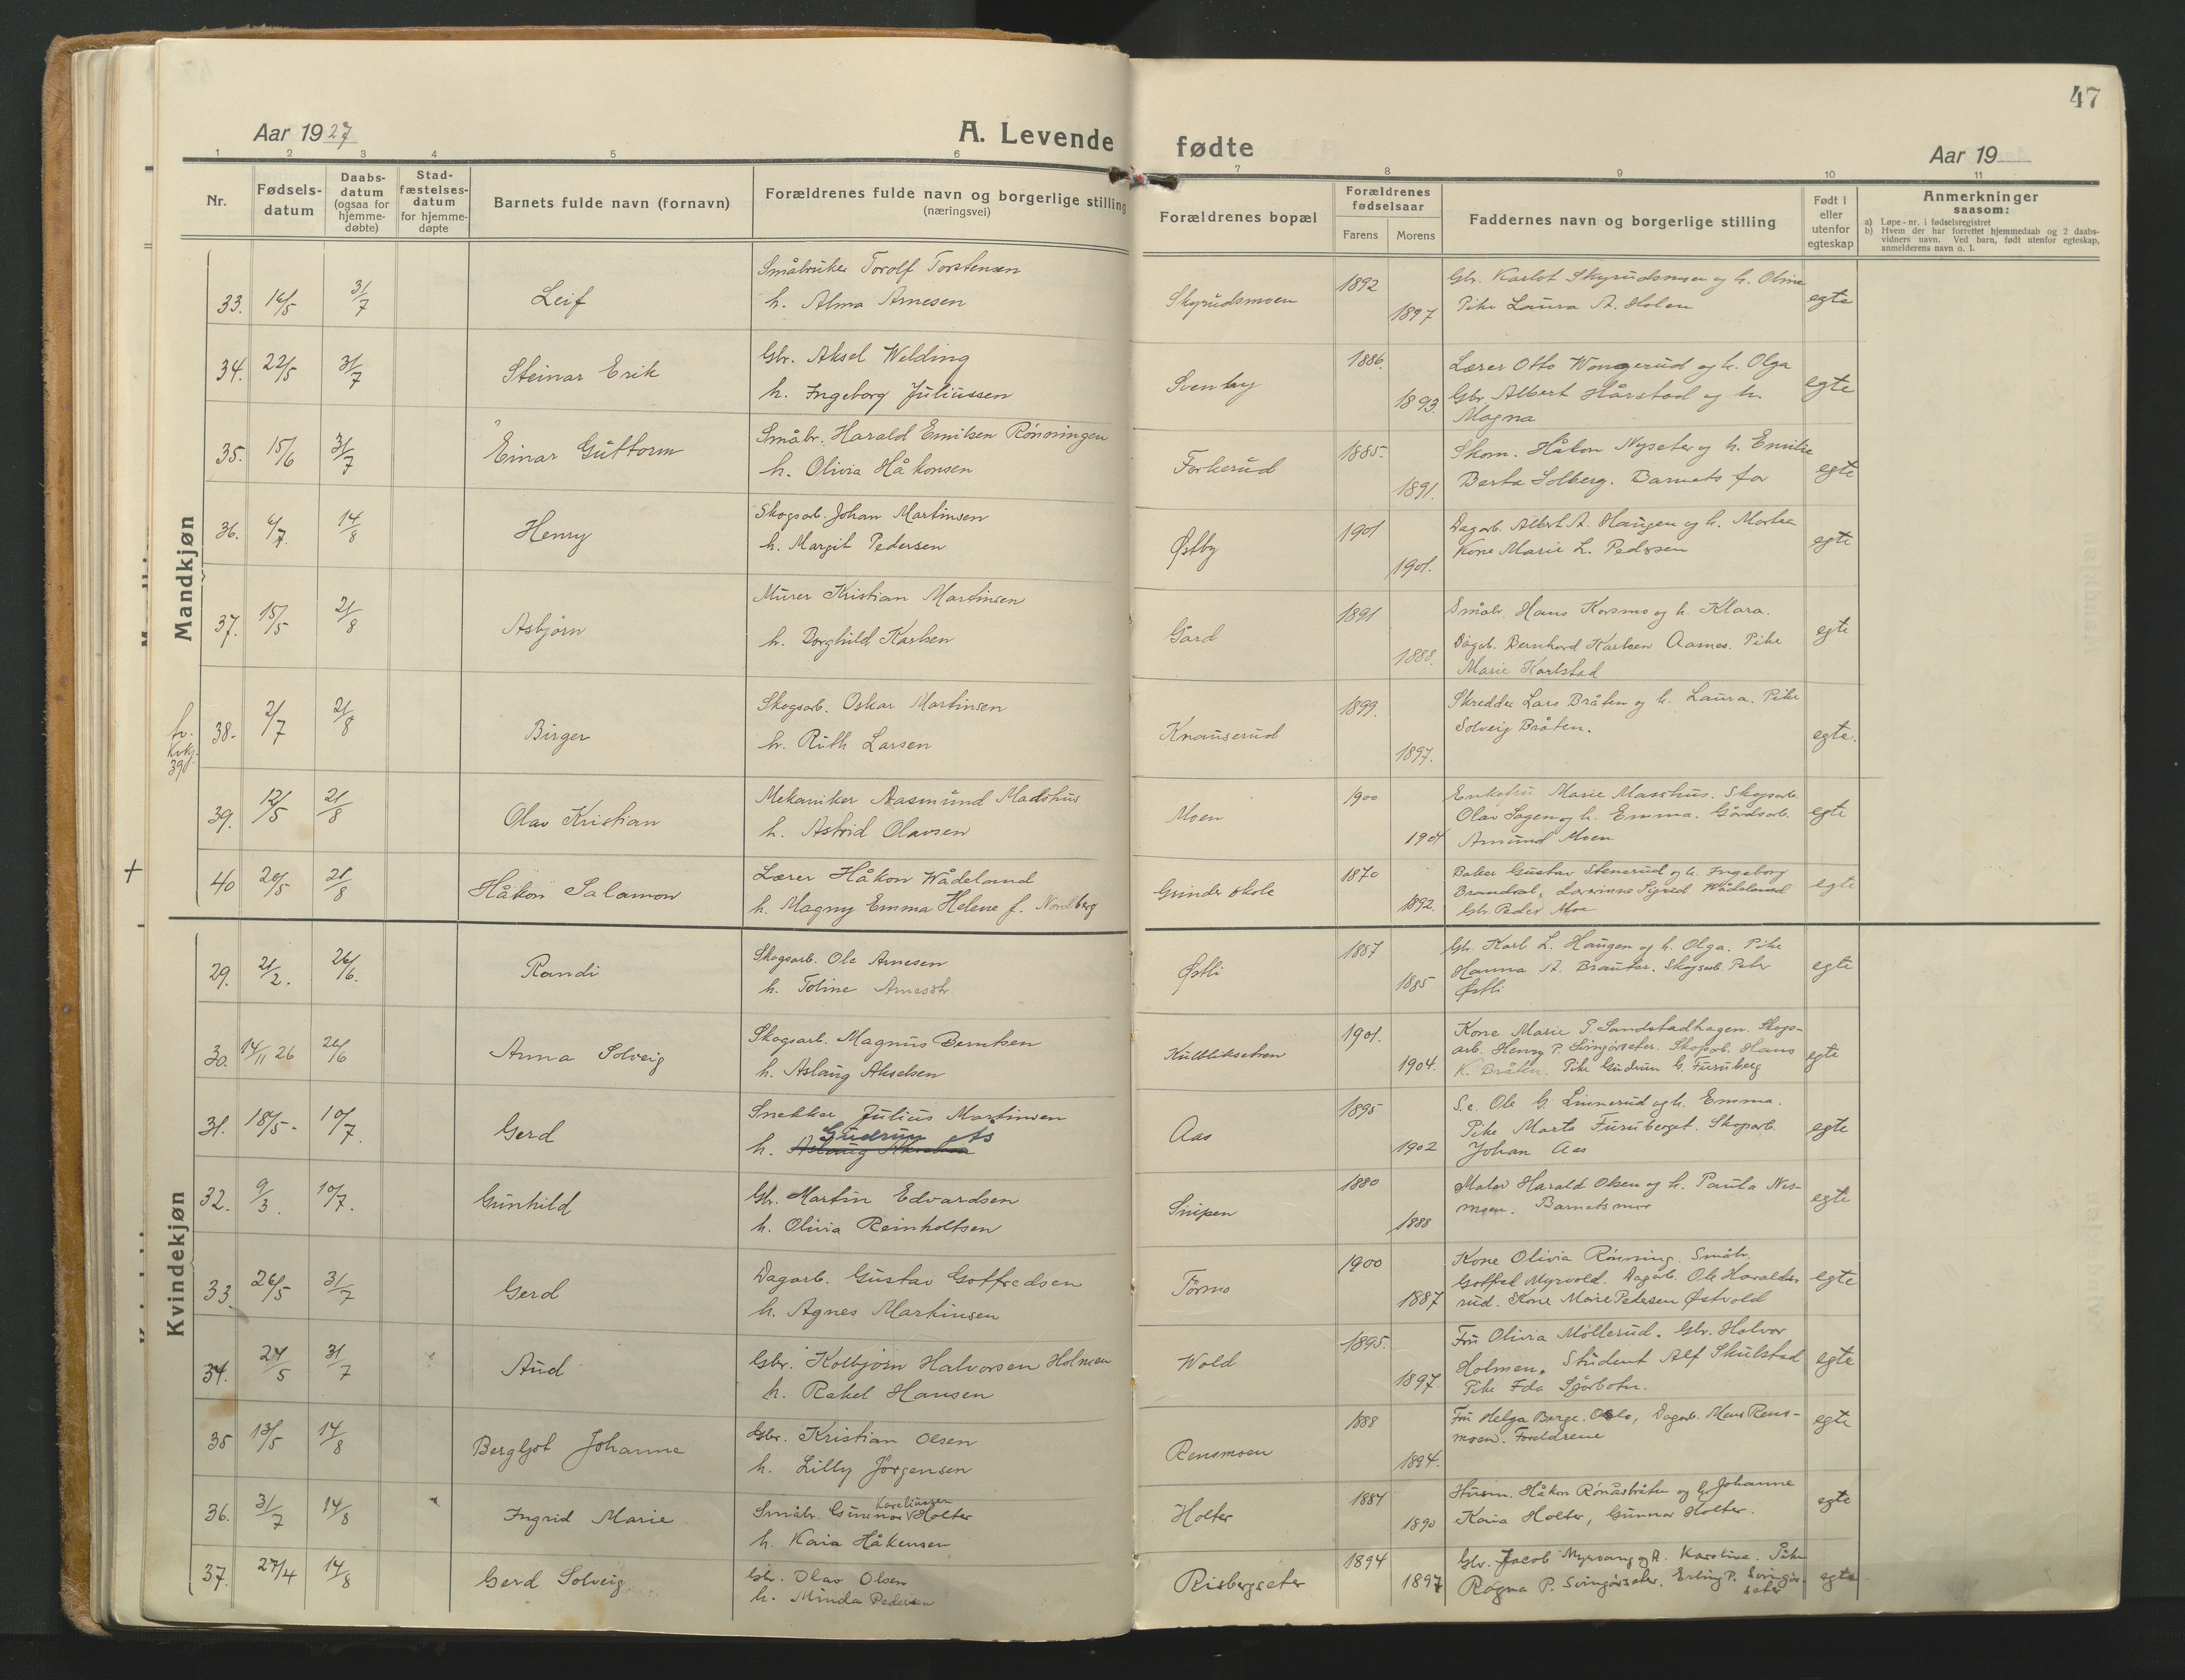 47
Aar 1927
A. Levende fødte
Aar 19
1 2 3 4 5 6 7 8 9 10 11
Nr.
Fødsels-
datum
Daabs-
datum
(ogsaa for
hjemme-
døbte)
Stad-
fæstelses-
datum
for hjemme-
døpte
Barnets fulde navn (fornavn)
Forældrenes fulde navn og borgerlige stilling
(næringsvei)
Forældrenes bopæl
Forældrenes
fødselsaar
Farens Morens
Faddernes navn og borgerlige stilling
Født i
eller
utenfor
egteskap
Anmerkninger
saasom:
a) Løpe-nr. i fødselsregistret
b) Hvem der har forrettet hjemmedaab og 2 daabs-
vidners navn. Ved barn, født utenfor egteskap,
anmelderens navn o. l.
Mandkjøn
33. 16/5 31/7 Leif Småbruker Torolf Torstensen
h. Alma Arnesen
Skyrudsmoen 1892 1897 Gbr. Karlot Skyrudsmoen og h. Oline
Pike Laura A. Holen
egte
34. 22/5 31/7 Steinar Erik Gbr. Aksel Welding
h. Ingeborg Juliussen
Svenby 1886. 1893. Lærer Otto Wongerud og h. Olga
Gbr. Albert Hårstad og h.
Magna
egte
35. 15/6 31/7 Einar Guttorm Småbr. Harald Emilsen Rønningen
h. Olivia Håkonsen
Forkerud 1885. 1891. Skom. Håkon Nyseter og h. Emilie
Berta Solberg. Barnets far
egte
36. 6/7. 14/8 Henry Skogsarb. Johan Martinsen
h. Margit Pedersen
Østby 1901 1901. Dagarb. Albert A. Haugen og h. Martea
Kone Marie L. Pedersen
egte
37. 15/5 21/8 Asbjørn Murer Kristian Martinsen
h. Borghild Karlsen
Gård 1891 1888. Småbr. Hans Korsmo og h. Klara.
Dagarb. Bernhard Karlsen Aasnes. Pike
Marie Karlstad
egte
fr.
Kvkj.
39
38. 2/7 21/8 Birger Skogsarb. Oskar Martinsen
h. Ruth Larsen
Knauserud 1899. 1897. Skredder Lars Bråten og h. Laura. Pike
Solveig Bråten.
egte.
39. 12/5 21/8 Olav Kristian Mekaniker Aasmund Madshus
h. Astrid Olavsen
Moen 1900 1901 Enkefru Marie Masshus. Skogsarb.
Olav Sagen og h. Emma. Gårdsarb.
Amund Moen
egte
+ 40 20/5 21/8 Håkon Salamon Lærer Håkon Wådeland
h. Magny Emma Helene f. Nordberg
Grinder skole 1870 1892. Baker Gustav Stenerud og h. Ingeborg
Lærerinne Sigrid Wådeland
Gbr. Peder Moe
egte
Kvindekjøn
29. 21/2. 26/6. Randi Skogsarb. Ole Arnesen
h. Toline
Østli 1887 1885 Gbr. Karl L. Haugen og h. Olga. Pike
Hanna A. Brauter. Skogsarb. Peder
Østli
egte
30. 14/11 26 26/6 Anna Solveig Skogsarb. Magnus Berntsen
h. Aslaug Akselsen
Kulbliksetren 1901. 1904. Kone Marie P. Sandstadhagen. Skogs-
arb. Henry P. Svingørseter. Skogarb. Hans
K. Bråten. Pike Gudrun G. Furuberg
egte
31. 18/5 10/7. Gerd Snekker Julius Martinsen
Gudrun As
h. Aslaug Akselsen
Aas 1895 1902 S.e. Ole G. Linnerud og h. Emma.
Pike Marta Furuberget. Skogarb.
Johan Aas
egte
32. 9/3. 10/7. Gunhild Gbr. Martin Edvardsen
h. Olivia Reinholtsen
Snipen 1880 1888 Maler Harald Olsen og h. Paula Nes-
moen. Barnets mor
egte
33 26/5 31/7 Gerd Dagarb. Gustav Gotfredsen
h. Agnes Martinsen
Førmo 1900 1887 Kone Olivia Rønning. Småbr.
Gotfred Myrvold. Dagarb. Ole Haralds-
rud. Kone Marie Pedersen Østvold
egte
34. 24/5 31/7 Aud Gbr. Kolbjørn Halvorsen Holmen
h. Rakel Hansen
Wold 1895. 1897. Fru Olivia Møllerud. Gbr. Halvor
Holmen. Student Alf Skulstad
Pike Eda Sjørbotn.
egte
35 13/5 14/8 Bergljot Johanne Gbr. Kristian Olsen
h. Lilly Jørgensen
Rensmoen 1888 1894. Fru Helga Berge. Oslo, Dagarb. Mens Rens-
moen. Foreldrene
egte
36. 31/7 14/8 Ingrid Marie Småbr. Gunnar Kareliussen Holter
h. Kaia Håkensen
Holter 1887 1890 Husm. Håkon Rønåsbråten og h. Johanne
Kaia Holter, Gunnar Holter.
egte
37. 27/4 14/8 Gerd Solveig Gbr. Olav Olsen
h. Minda Pedersen
Risbergseter 1894 1897 Gbr. Jacob Myrvang og h. Karoline. Pike
Ragna P. Svingørseter. Erling P. Svingør-
seter
egte